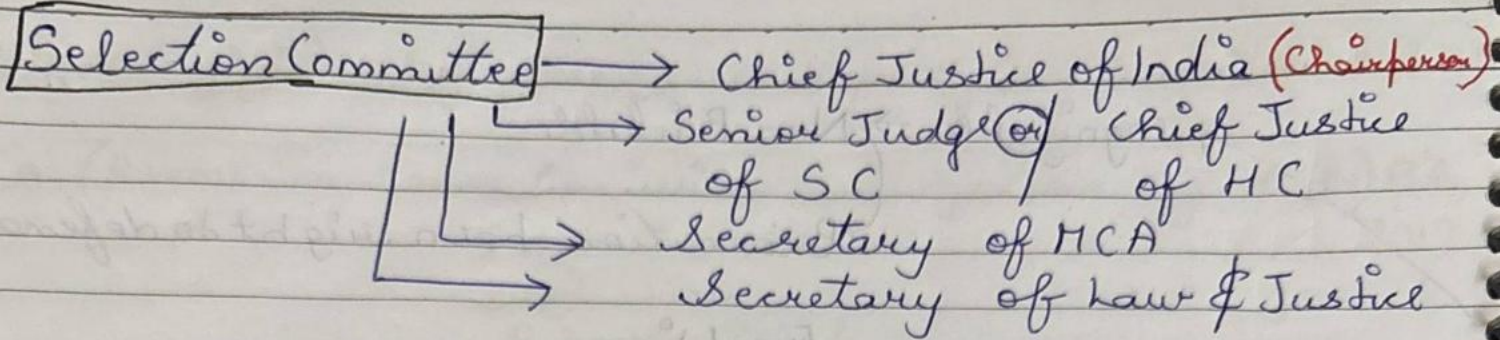 Selection Committee → Chief Justice of India (Chairperson)
→ Senior Judge or / Chief Justice
of SC / of HC
→ Secretary of MCA
→ Secretary of Law & Justice